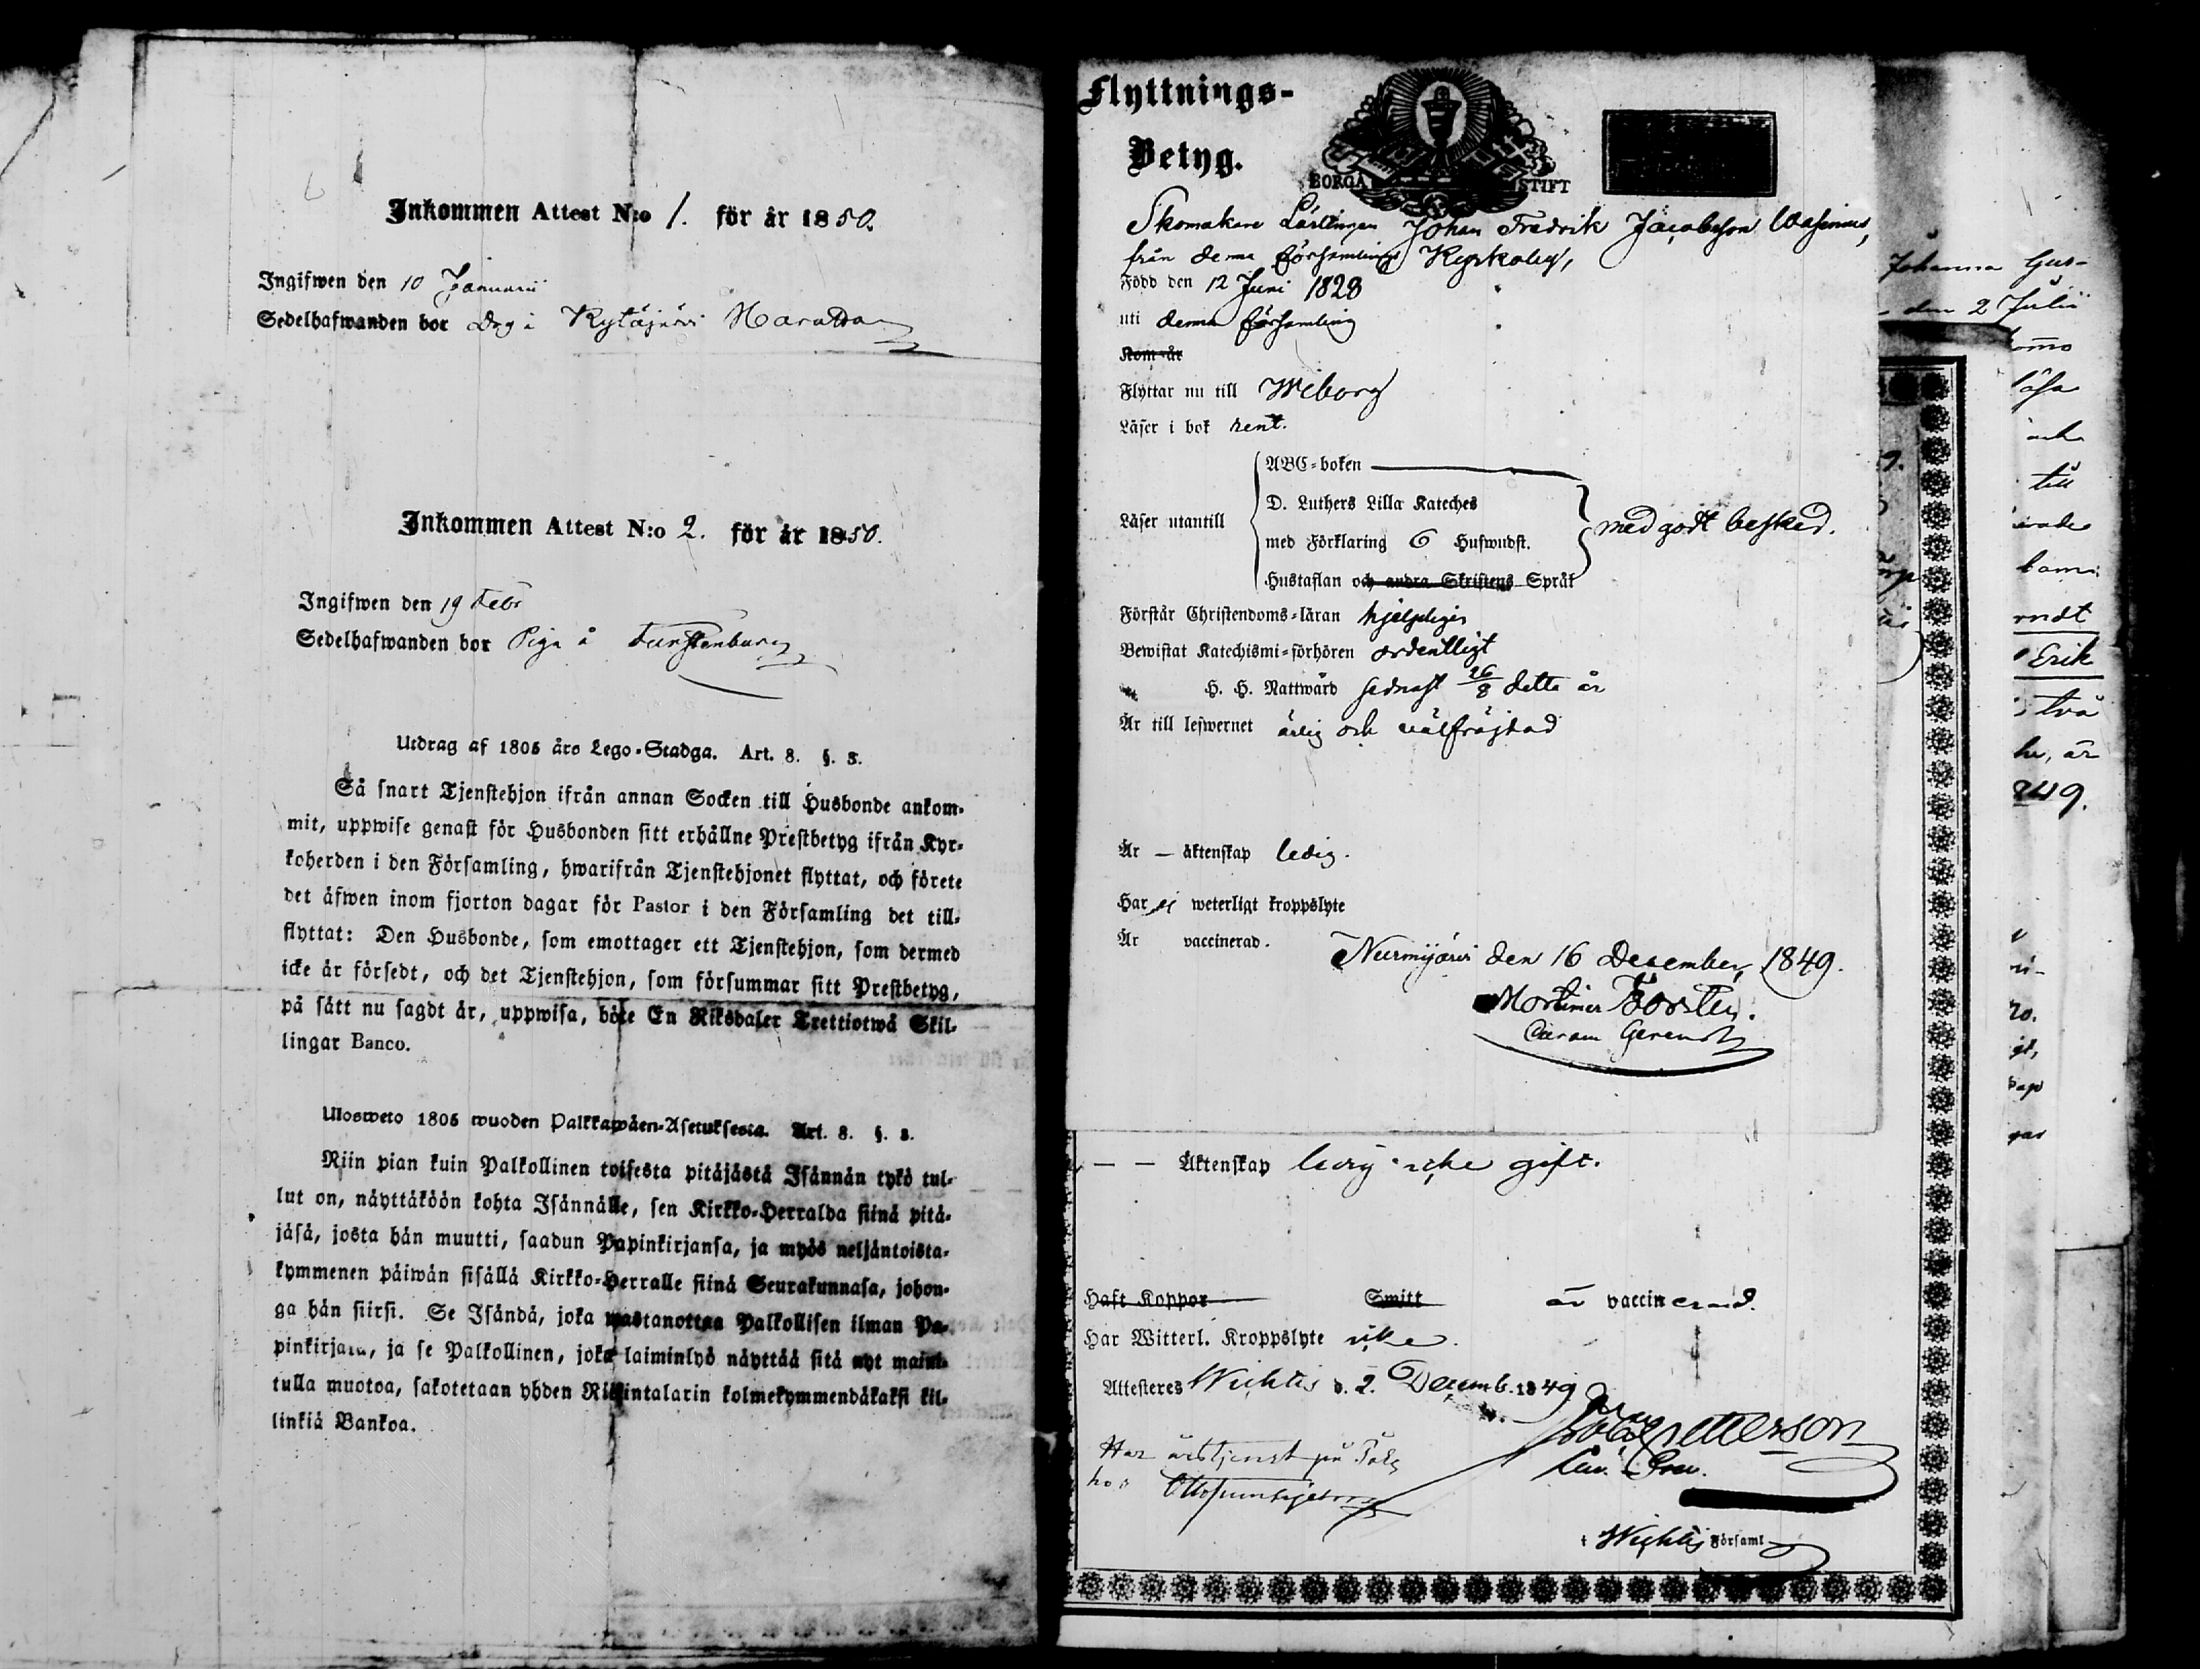 Inkommen Attest N:o 1. för år 1850.
Ingifwen den 10 Januarii
Sedelhafwanden bor Drg i Kytäjärvi
Inkommen Attest N:o 2. för år 1850.
Ingifwen den 19 Febr
Sedelhafwanden bor Piga å
Utdrag af 1805 års Lego-Stadga. Art. 8. §. 3.
Så snart Tjenstehjon ifrån annan Socken till Husbonde ankom-
mit, uppwise genast för Husbonden sitt erhållne Prestbetyg ifrån Kyr-
koherden i den Församling, hwarifrån Tjenstehjonet flyttat, och förete
det äfwen inom fjorton dagar för Pastor i den Församling det till-
flyttat: Den Husbonde, som emottager ett Tjenstehjon, som dermed
icke är försedt, och det Tjenstehjon, som försummar sitt Prestbetyg,
på sätt nu sagdt är, uppwisa, böte En Riksdaler Trettiotwå Skil-
lingar Banco.
Ulosweto 1805 wuoden Palkkawäen-Asetuksesta. Art. 8. §. 3.
Niin pian kuin Palkollinen toisesta pitäjästä Isännän tykö tul-
lut on, näyttäköön kohta Isännälle, sen Kirkko-Herralda siinä pitä-
jäsä, josta hän muutti, saadun Papinkirjansa, ja myös neljäntoista-
kymmenen päiwän sisällä Kirkko-Herralle siinä Seurakunnasa, johon-
ga hän siirsi. Se Isändä, joka wastanottaa Palkollisen ilman Pa-
pinkirjata, ja se Palkollinen, joka laiminlyö näyttää sitä nyt maini-
tulla muotoa, sakotetaan yhden Riksintalarin kolmekymmendäkaksi kil-
linkiä Bankoa.
Flyttnings-
Betyg.
BORGÅ STIFT
Skomakare Lärlingen Johan Fredrik Jacobsson Wasenius,
från denna församlings Kyrkoby,
Född den 12 Juni 1828
uti denna församling
Kom år
Flyttar nu till Wiborg
Läser i bok rent.
Läser utantill
ABC-boken
D. Luthers Lilla Kateches
med Förklaring 6 Hufwudst.
Hustaflan och andra Skriftens Språk
med godt besked.
Förstår Christendoms-läran hjelpligen
Bewistat Katechismi-förhören ordentligt
H. H. Nattward sednast 26/8 detta år
Är till lefwernet ärlig och välfräjdad
Är — äktenskap ledig.
Har ej weterligt kroppslyte
Är vaccinerad.
Nurmijärvi den 16 December 1849.
Mortimer Forstén.
Curam Gerens
— — Äktenskap ledig icke gift.
Haft Koppor Smitt är vaccinerad.
Har Witterl. Kroppslyte icke.
Attesteras Wichtis d. 2. Decemb. 1849
Har årstjenst på
hos
i Wichtis Församl
Johanna Gus-
den 2 Julii
till
Erik
två
är
849.